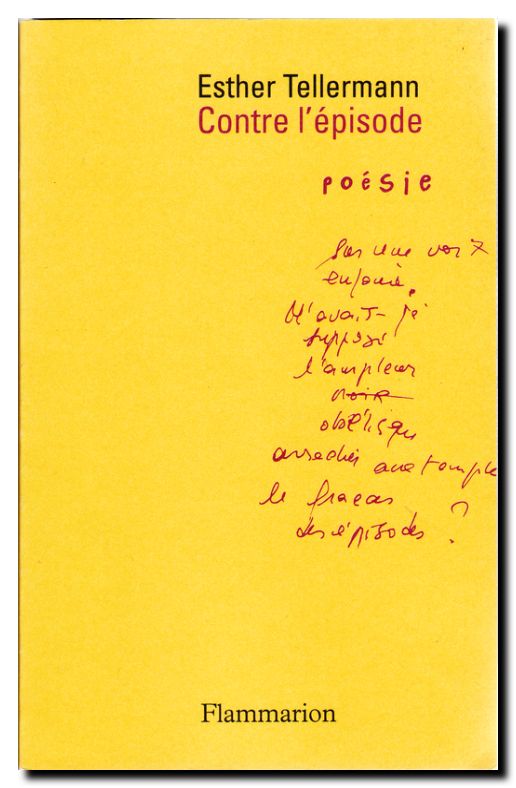 Esther Tellermann
Contre l'épisode
poésie
Sur une voix
enfouie.
N'avait-je
supposé
l'ampleur
noire
obélisque
arracher aux temples
le fracas
des épisodes ?
Flammarion